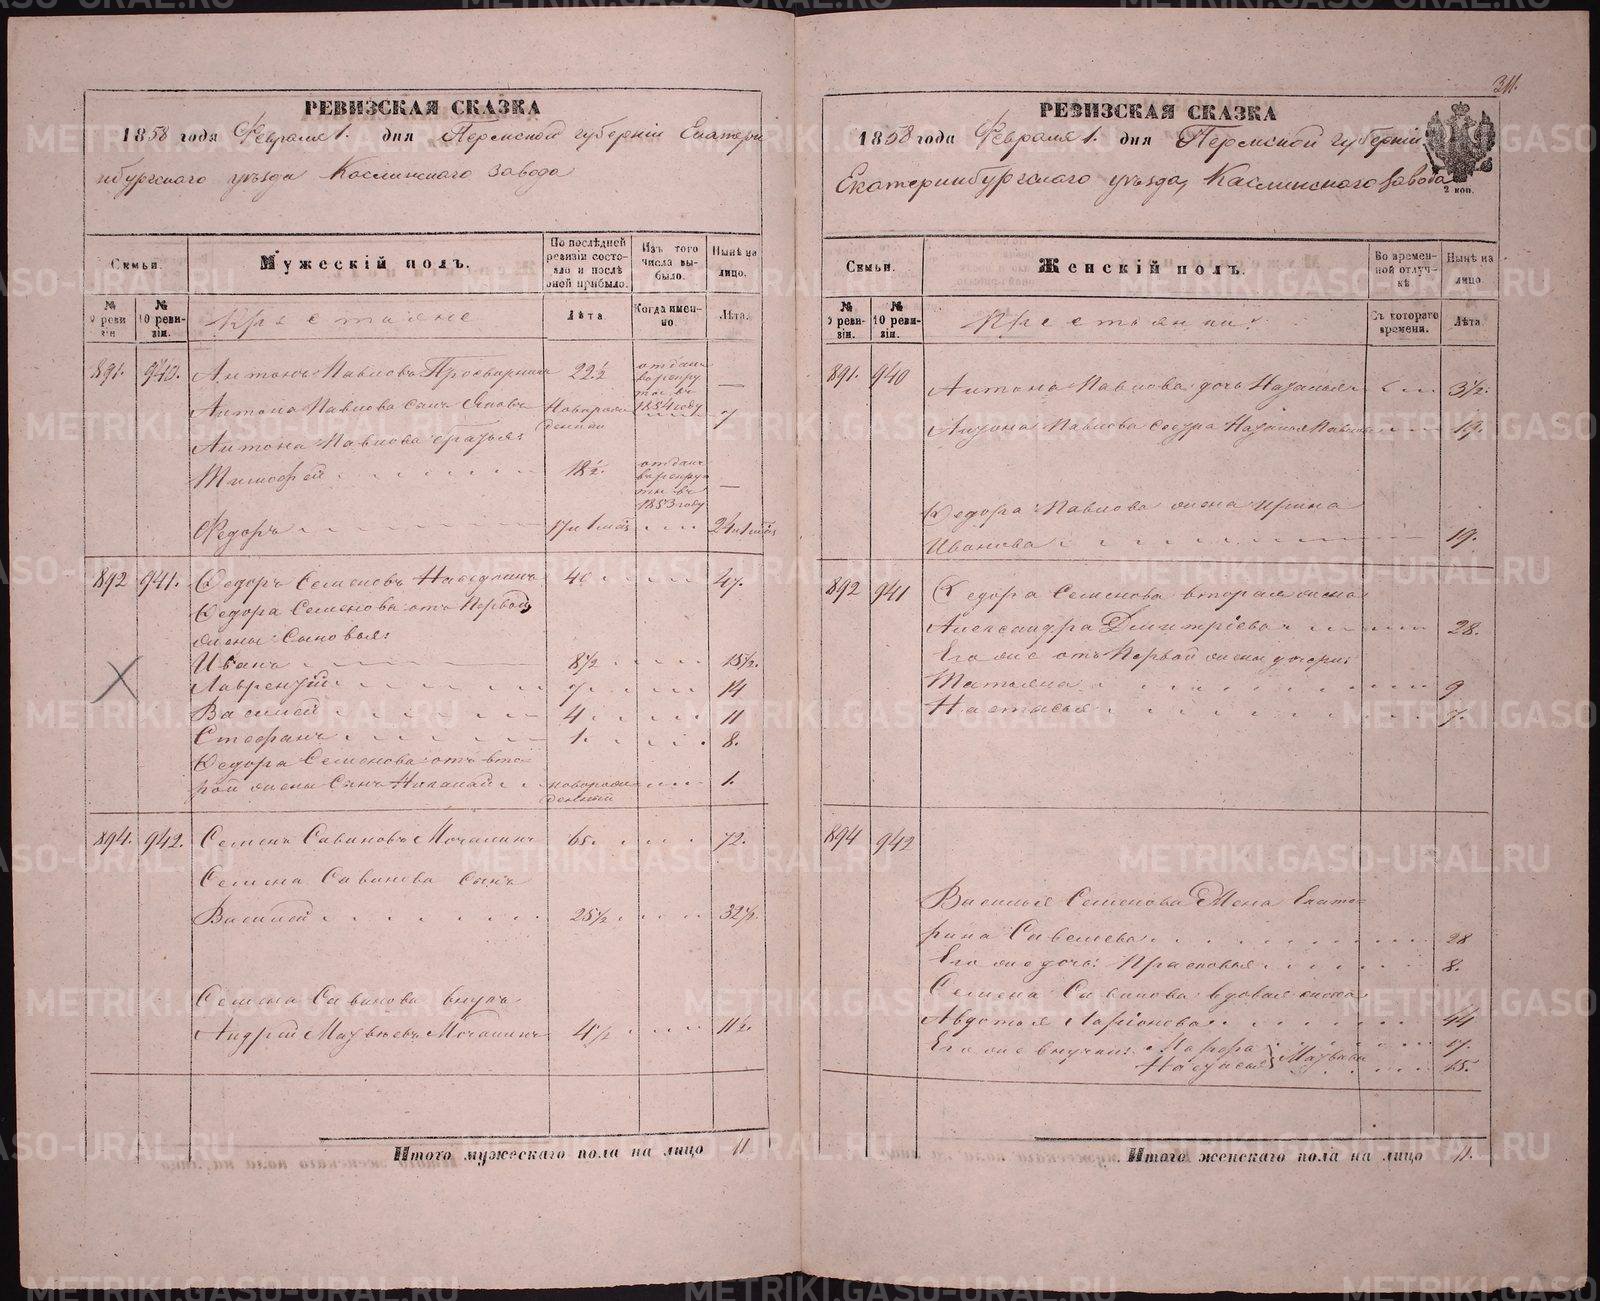 РЕВИЗСКАЯ СКАЗКА
1858 года Февраля 1. дня Пермской губернiи Екатери
нбургскаго уѣзда Каслинскаго завода
Семьи.
Мужескiй полъ.
По послѣдней ревизiи состояло и послѣ оней прибыло.
Изъ того числа выбыло.
Нынѣ на лицо.
№ 9 ревизiи.
№ 10 ревизiи.
Крестьяне
Лѣта.
Когда именно.
Лѣта.
891. 940. Антонъ Павловъ 22½ отданъ въ рекруты въ 1854 году —
Антона Павлова сынъ Новорожденной 7
Антона Павлова братья:
Тимофей 18½. отданъ въ рекруты въ 1853 году —
Ѳедоръ 17 и 1 мѣс 24 и 1 мѣс
892 941. Ѳедоръ Семеновъ 40 47.
Ѳедора Семенова отъ первой
жены сыновья:
Иванъ 8½ 15½.
Лаврентiй 7 14
Василей 4 11
Стефанъ 1. 8.
Ѳедора Семенова отъ вто
рой жены сынъ новорожденный 1.
894. 942. Семенъ Савиновъ Мочалинъ 65. 72.
Семена Савинова сынъ
Василей 25½ 32½.
Семена Савинова внукъ
Андрей Матвѣевъ Мочалинъ 4½ 11½.
Итого мужескаго пола на лицо 11
311.
РЕВИЗСКАЯ СКАЗКА
1858 года Февраля 1. дня Пермской губернiи
Екатеринбургскаго уѣзда, Каслинскаго завода
2 коп.
Семьи.
Женскiй полъ.
Во временной отлучкѣ
Нынѣ на лицо.
№ 9 ревизiи.
№ 10 ревизiи.
Крестьянки:
Съ котораго времени.
Лѣта.
891. 940 Антона Павлова дочь Наталья 3½.
Антона Павлова сестра Наталья Павлова 19.
Ѳедора Павлова жена Ирина
Иванова 19.
892 941 Ѳедора Семенова вторая жена
Александра Дмитрiева 28.
Его же отъ первой жены дочери:
Татьяна 9
Настасья 7.
894 942
Василья Семенова жена Екате
рина Савельева 28
Его же дочь: Прасковья 8.
Семена Савинова вдовая сноха
Авдотья Ларiонова 44
Его же внучки: Марфа 17.
Настасья Матвѣевы 15.
Итого женскаго пола на лицо 11.
METRIKI.GASO-URAL.RU